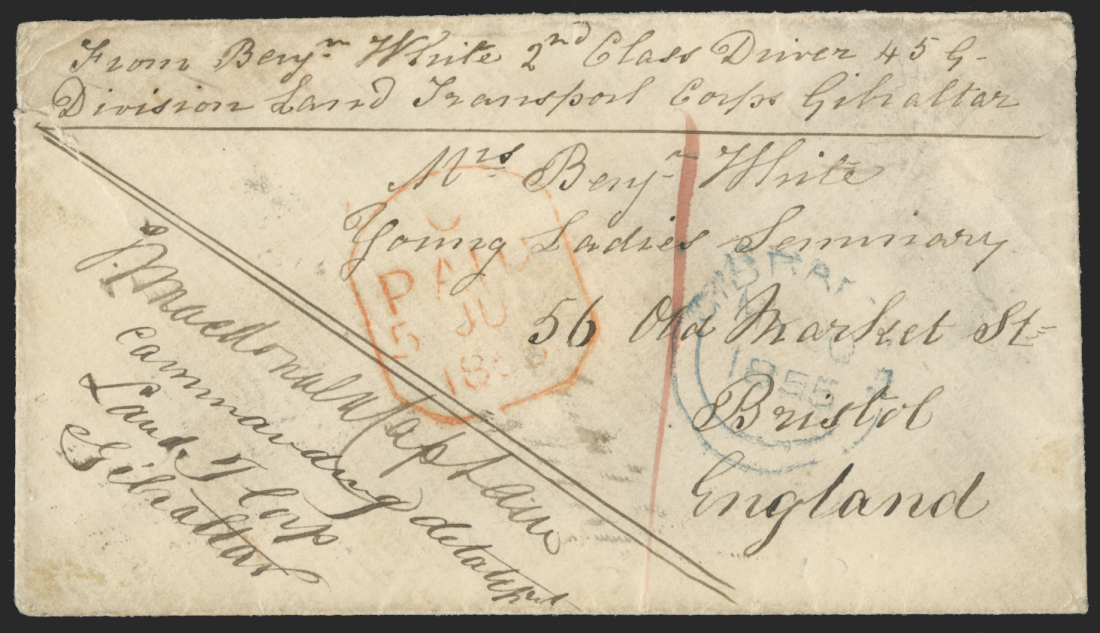 From Benjn White 2nd Class Driver 45 G-
Division Land Transport Corps Gibraltar
Mrs Benjn White
Young Ladies Seminary
56 Old Market St
Bristol
England
J. Macdonald Captain
Commanding detatchmt
Land. T Corp
Gibraltar
PAID
5 JU
185
GIBRALTAR
1855